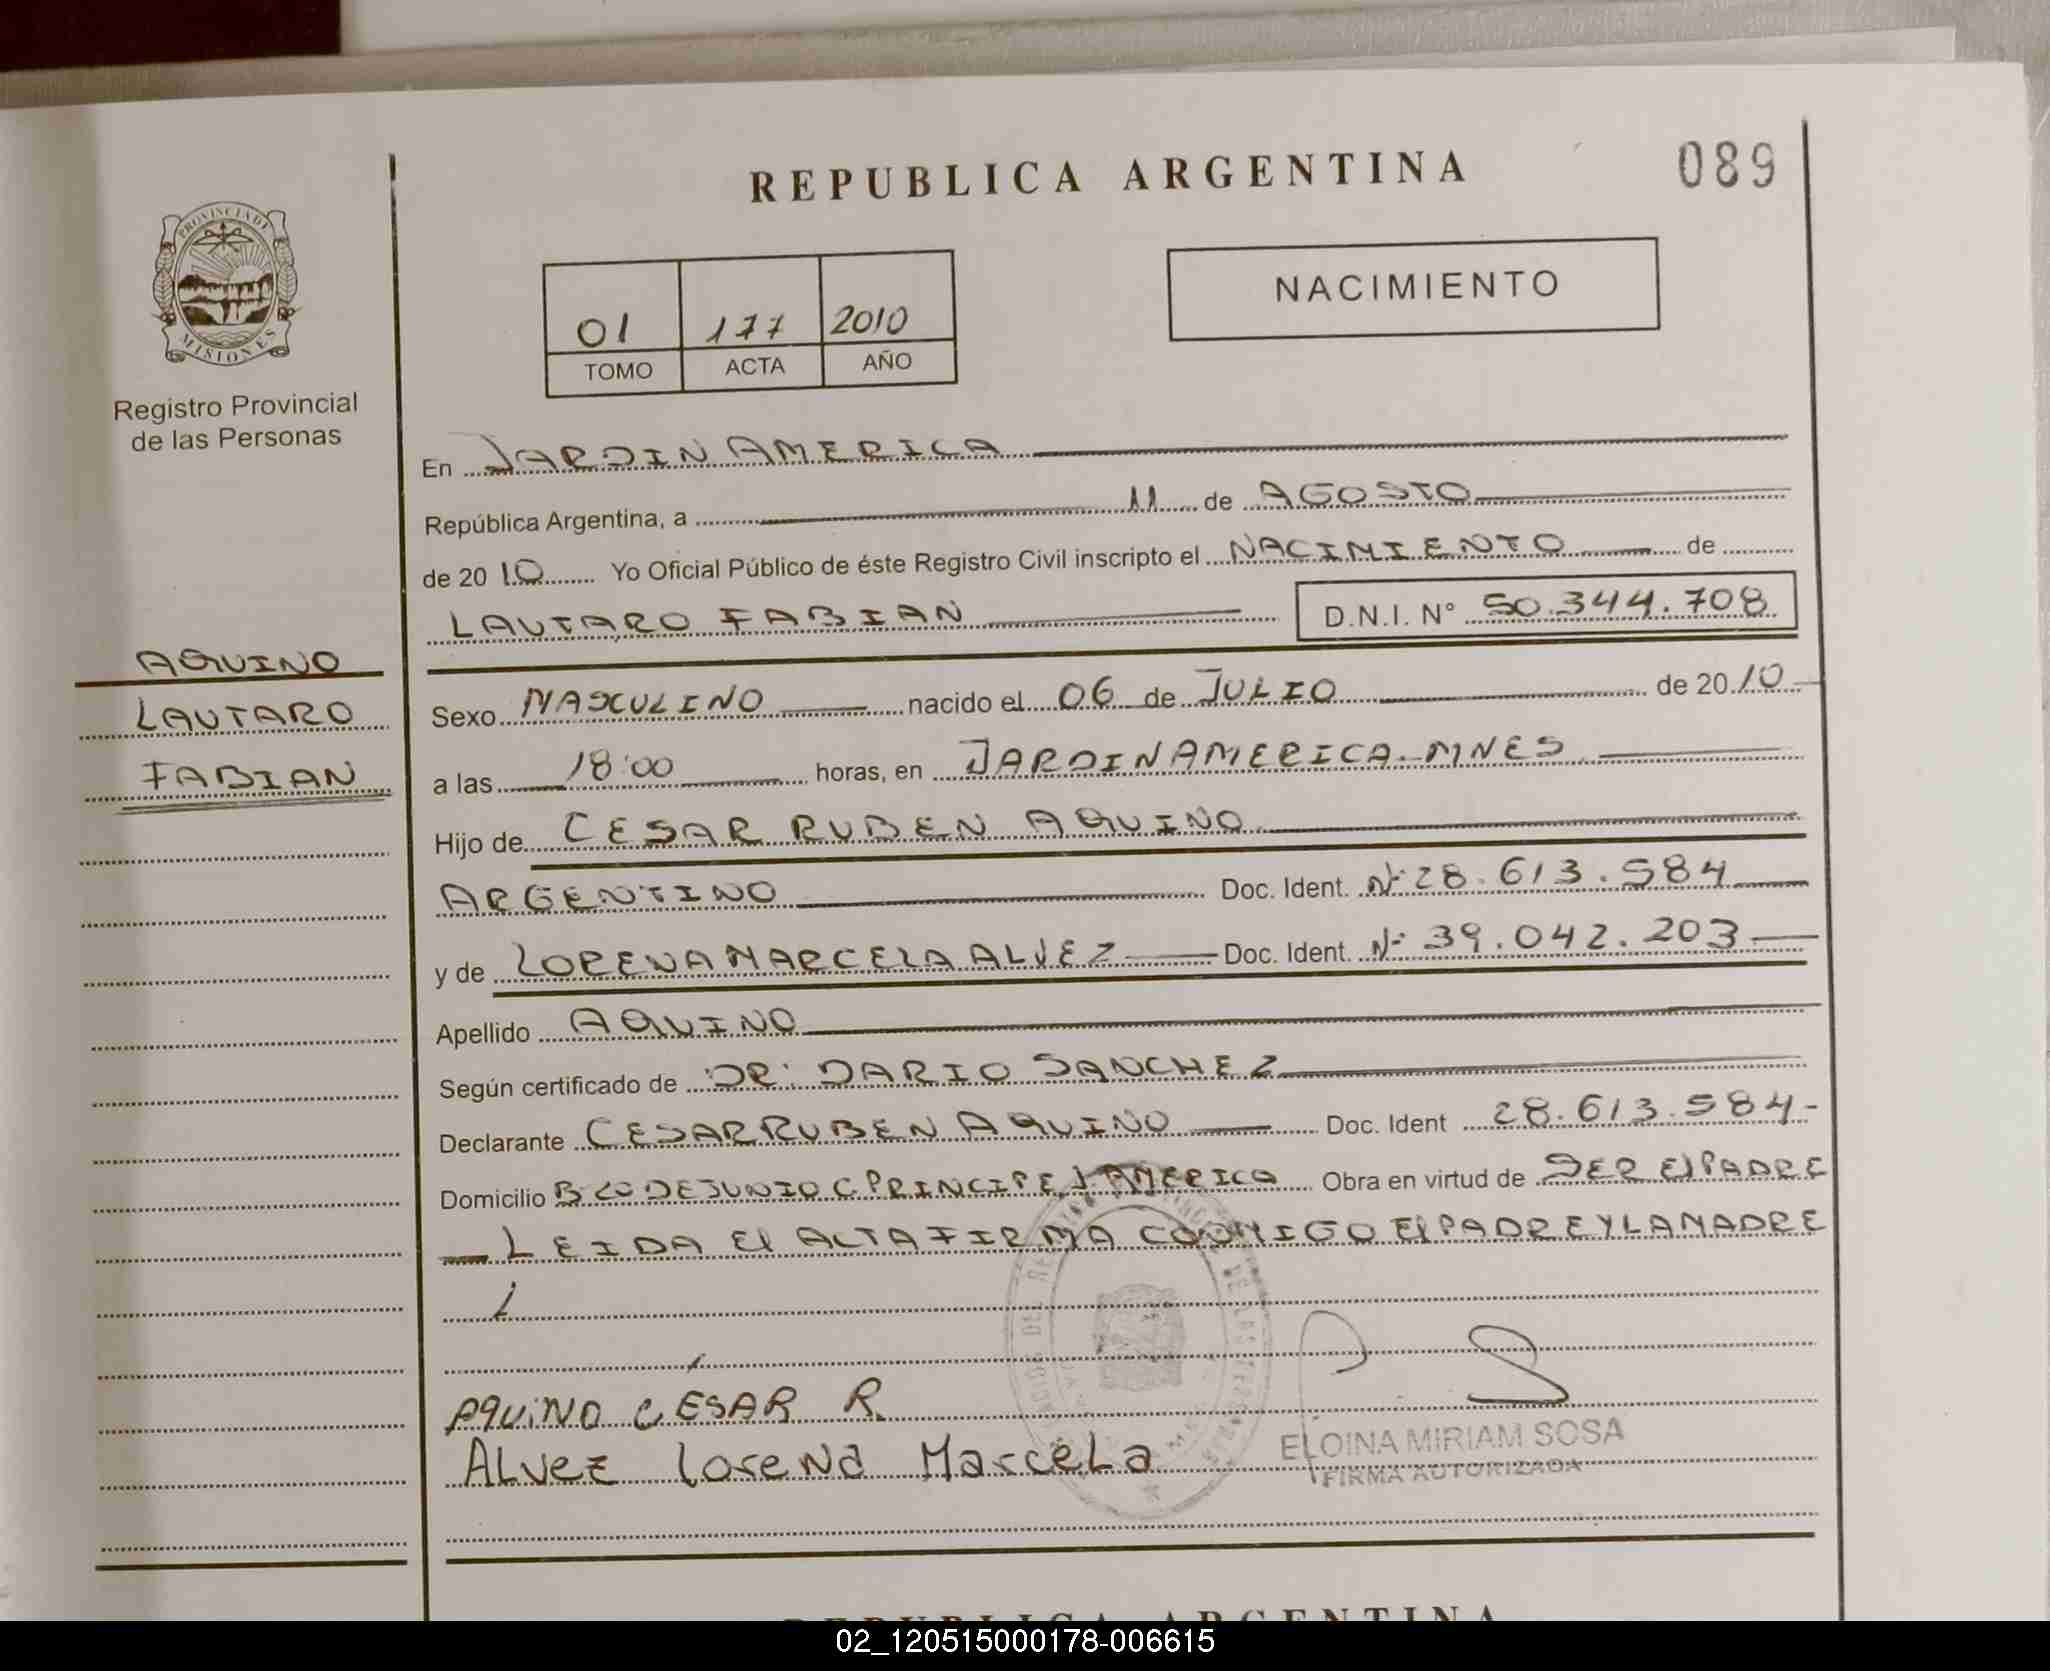 REPUBLICA ARGENTINA
089
PROVINCIA DE
MISIONES
Registro Provincial
de las Personas
01 177 2010
TOMO ACTA AÑO
NACIMIENTO
En JARDIN AMERICA
República Argentina, a 11 de AGOSTO
de 2010 Yo Oficial Público de éste Registro Civil inscripto el NACIMIENTO de
LAUTARO FABIAN D.N.I. N° 50.344.708
AQUINO
LAUTARO
FABIAN
Sexo MASCULINO nacido el 06 de JULIO de 2010
a las 18:00 horas, en JARDIN AMERICA-MNES
Hijo de CESAR RUBEN AQUINO
ARGENTINO Doc. Ident. N° 28.613.584
y de LORENA MARCELA ALVEZ Doc. Ident. N° 39.042.203
Apellido AQUINO
Según certificado de DR. DARIO SANCHEZ
Declarante CESAR RUBEN AQUINO Doc. Ident 28.613.584-
Domicilio B 20 DE JUNIO C PRINCIPE J. AMERICA Obra en virtud de SER El PADRE
LEIDA El ALTA FIRMA CONMIGO El PADRE Y LA MADRE
AQUINO CÉSAR R.
ALvez Lorena MarceLa
ELOINA MIRIAM SOSA
FIRMA AUTORIZADA
REPUBLICA ARGENTINA
02_120515000178-006615